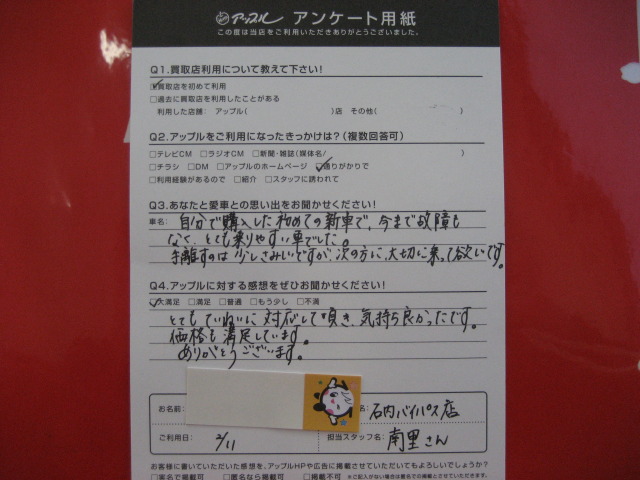 アップル アンケート用紙
この度は当店をご利用いただきありがとうございました。
Q1.買取店利用について教えて下さい!
□買取店を初めて利用
□過去に買取店を利用したことがある
利用した店舗: アップル( )店 その他( )
Q2.アップルをご利用になったきっかけは?(複数回答可)
□テレビCM □ラジオCM □新聞・雑誌(媒体名/ )
□チラシ □DM □アップルのホームページ □通りがかりで
□利用経験があるので □紹介 □スタッフに誘われて
Q3.あなたと愛車との思い出をお聞かせください!
車名: 自分で購入した初めての新車で、今まで故障も
なく、とても乗りやすい車でした。
手離すのは少しさみしいですが、次の方に、大切に乗って欲しいです。
Q4.アップルに対する感想をぜひお聞かせください!
□大満足 □満足 □普通 □もう少し □不満
とてもていねいに対応して頂き、気持ち良かったです。
価格も満足しています。
ありがとうございます。
お名前 名: 石内バイパス店
ご利用日: 2/11 担当スタッフ名: 南里さん
お客様に書いていただいた感想を、アップルHPや広告に掲載させていただいてもよろしいでしょうか?
□実名で掲載可 □匿名なら掲載可 □掲載不可 ※ご記入がない場合は匿名での掲載とさせていただきます。